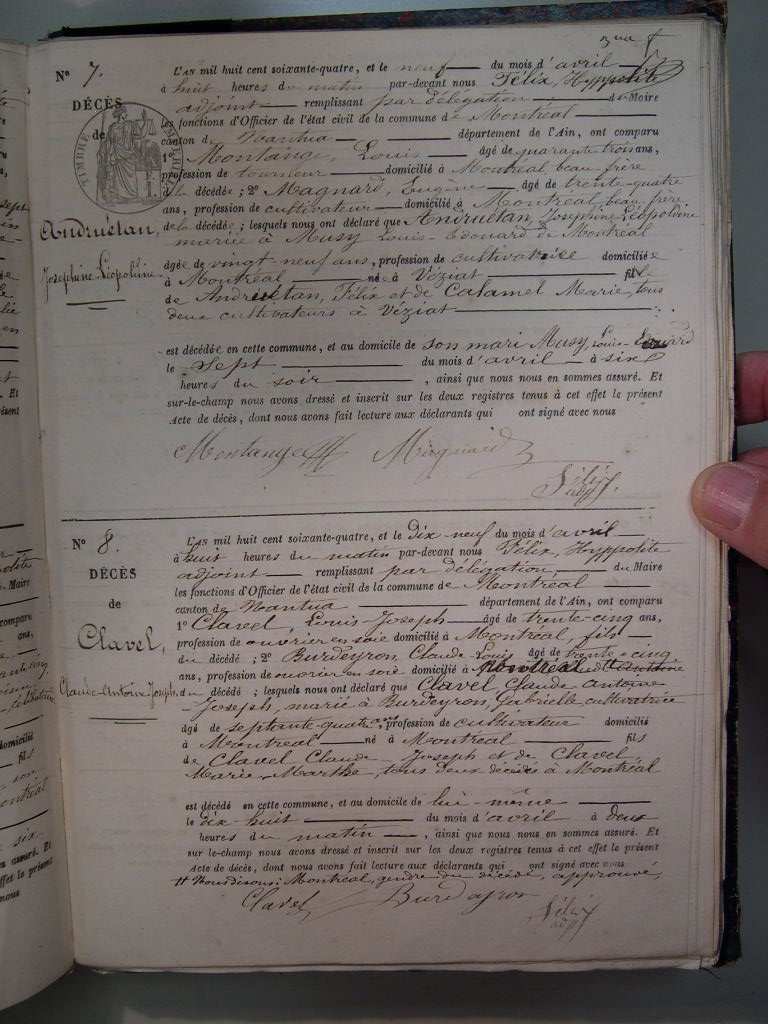 N° 7.
DÉCÈS
de
Andruétan,
Josephine Léopoldine
L'AN mil huit cent soixante-quatre, et le neuf du mois d'avril
à huit heures du matin par-devant nous Félix, Hyppolite
adjoint remplissant par délégation du Maire
les fonctions d'Officier de l'état civil de la commune de Montréal
canton de Nantua département de l'Ain, ont comparu
1° Montange, Louis âgé de quarante trois ans,
profession de tourneur domicilié à Montréal beau-frère
de la décédée; 2° Magnard, Eugène âgé de trente-quatre
ans, profession de cultivateur domicilié à Montréal beau frère
de la décédée; lesquels nous ont déclaré que Andruétan, Josephine Léopoldine
mariée à Musy Louis-Edouard de Montréal
âgée de vingt neuf ans, profession de cultivatrice domiciliée
à Montréal née à Véziat fille
de Andruétan, Félix et de Calamel Marie, tous
deux cultivateurs à Véziat
est décédée en cette commune, et au domicile de son mari Musy, Louis-Edouard
le sept du mois d'avril à six
heures du soir, ainsi que nous nous en sommes assuré. Et
sur-le-champ nous avons dressé et inscrit sur les deux registres tenus à cet effet le présent
Acte de décès, dont nous avons fait lecture aux déclarants qui ont signé avec nous
Montange Magnard
Félix adj.
N° 8.
DÉCÈS
de
Clavel,
Claude-Antoine-Joseph
L'AN mil huit cent soixante-quatre, et le dix neuf du mois d'avril
à huit heures du matin par-devant nous Félix, Hyppolite
adjoint remplissant par délégation, du Maire
les fonctions d'Officier de l'état civil de la commune de Montréal
canton de Nantua département de l'Ain, ont comparu
1° Clavel, Louis-Joseph âgé de trente-cinq ans,
profession de ouvrier en soie domicilié à Montréal, fils
du décédé; 2° Burdeyron, Claude-Louis âgé de trente-cinq
ans, profession de ouvrier en soie domicilié à Montréal
du décédé; lesquels nous ont déclaré que Clavel Claude antoine
Joseph, marié à Burdeyron, Gabrielle cultivatrice
âgé de septante-quatre ans, profession de cultivateur domicilié
à Montréal né à Montréal fils
de Clavel Claude-Joseph et de Clavel
Marie-Marthe, tous deux décédés à Montréal
est décédé en cette commune, et au domicile de lui-même
le dix-huit du mois d'avril à deux
heures du matin, ainsi que nous nous en sommes assuré. Et
sur le-champ nous avons dressé et inscrit sur les deux registres tenus à cet effet le présent
Acte de décès, dont nous avons fait lecture aux déclarants qui ont signé avec nous
# Nous disons: Montréal, gendre du décédé, approuvé,
Clavel Burdeyron
Félix adj.